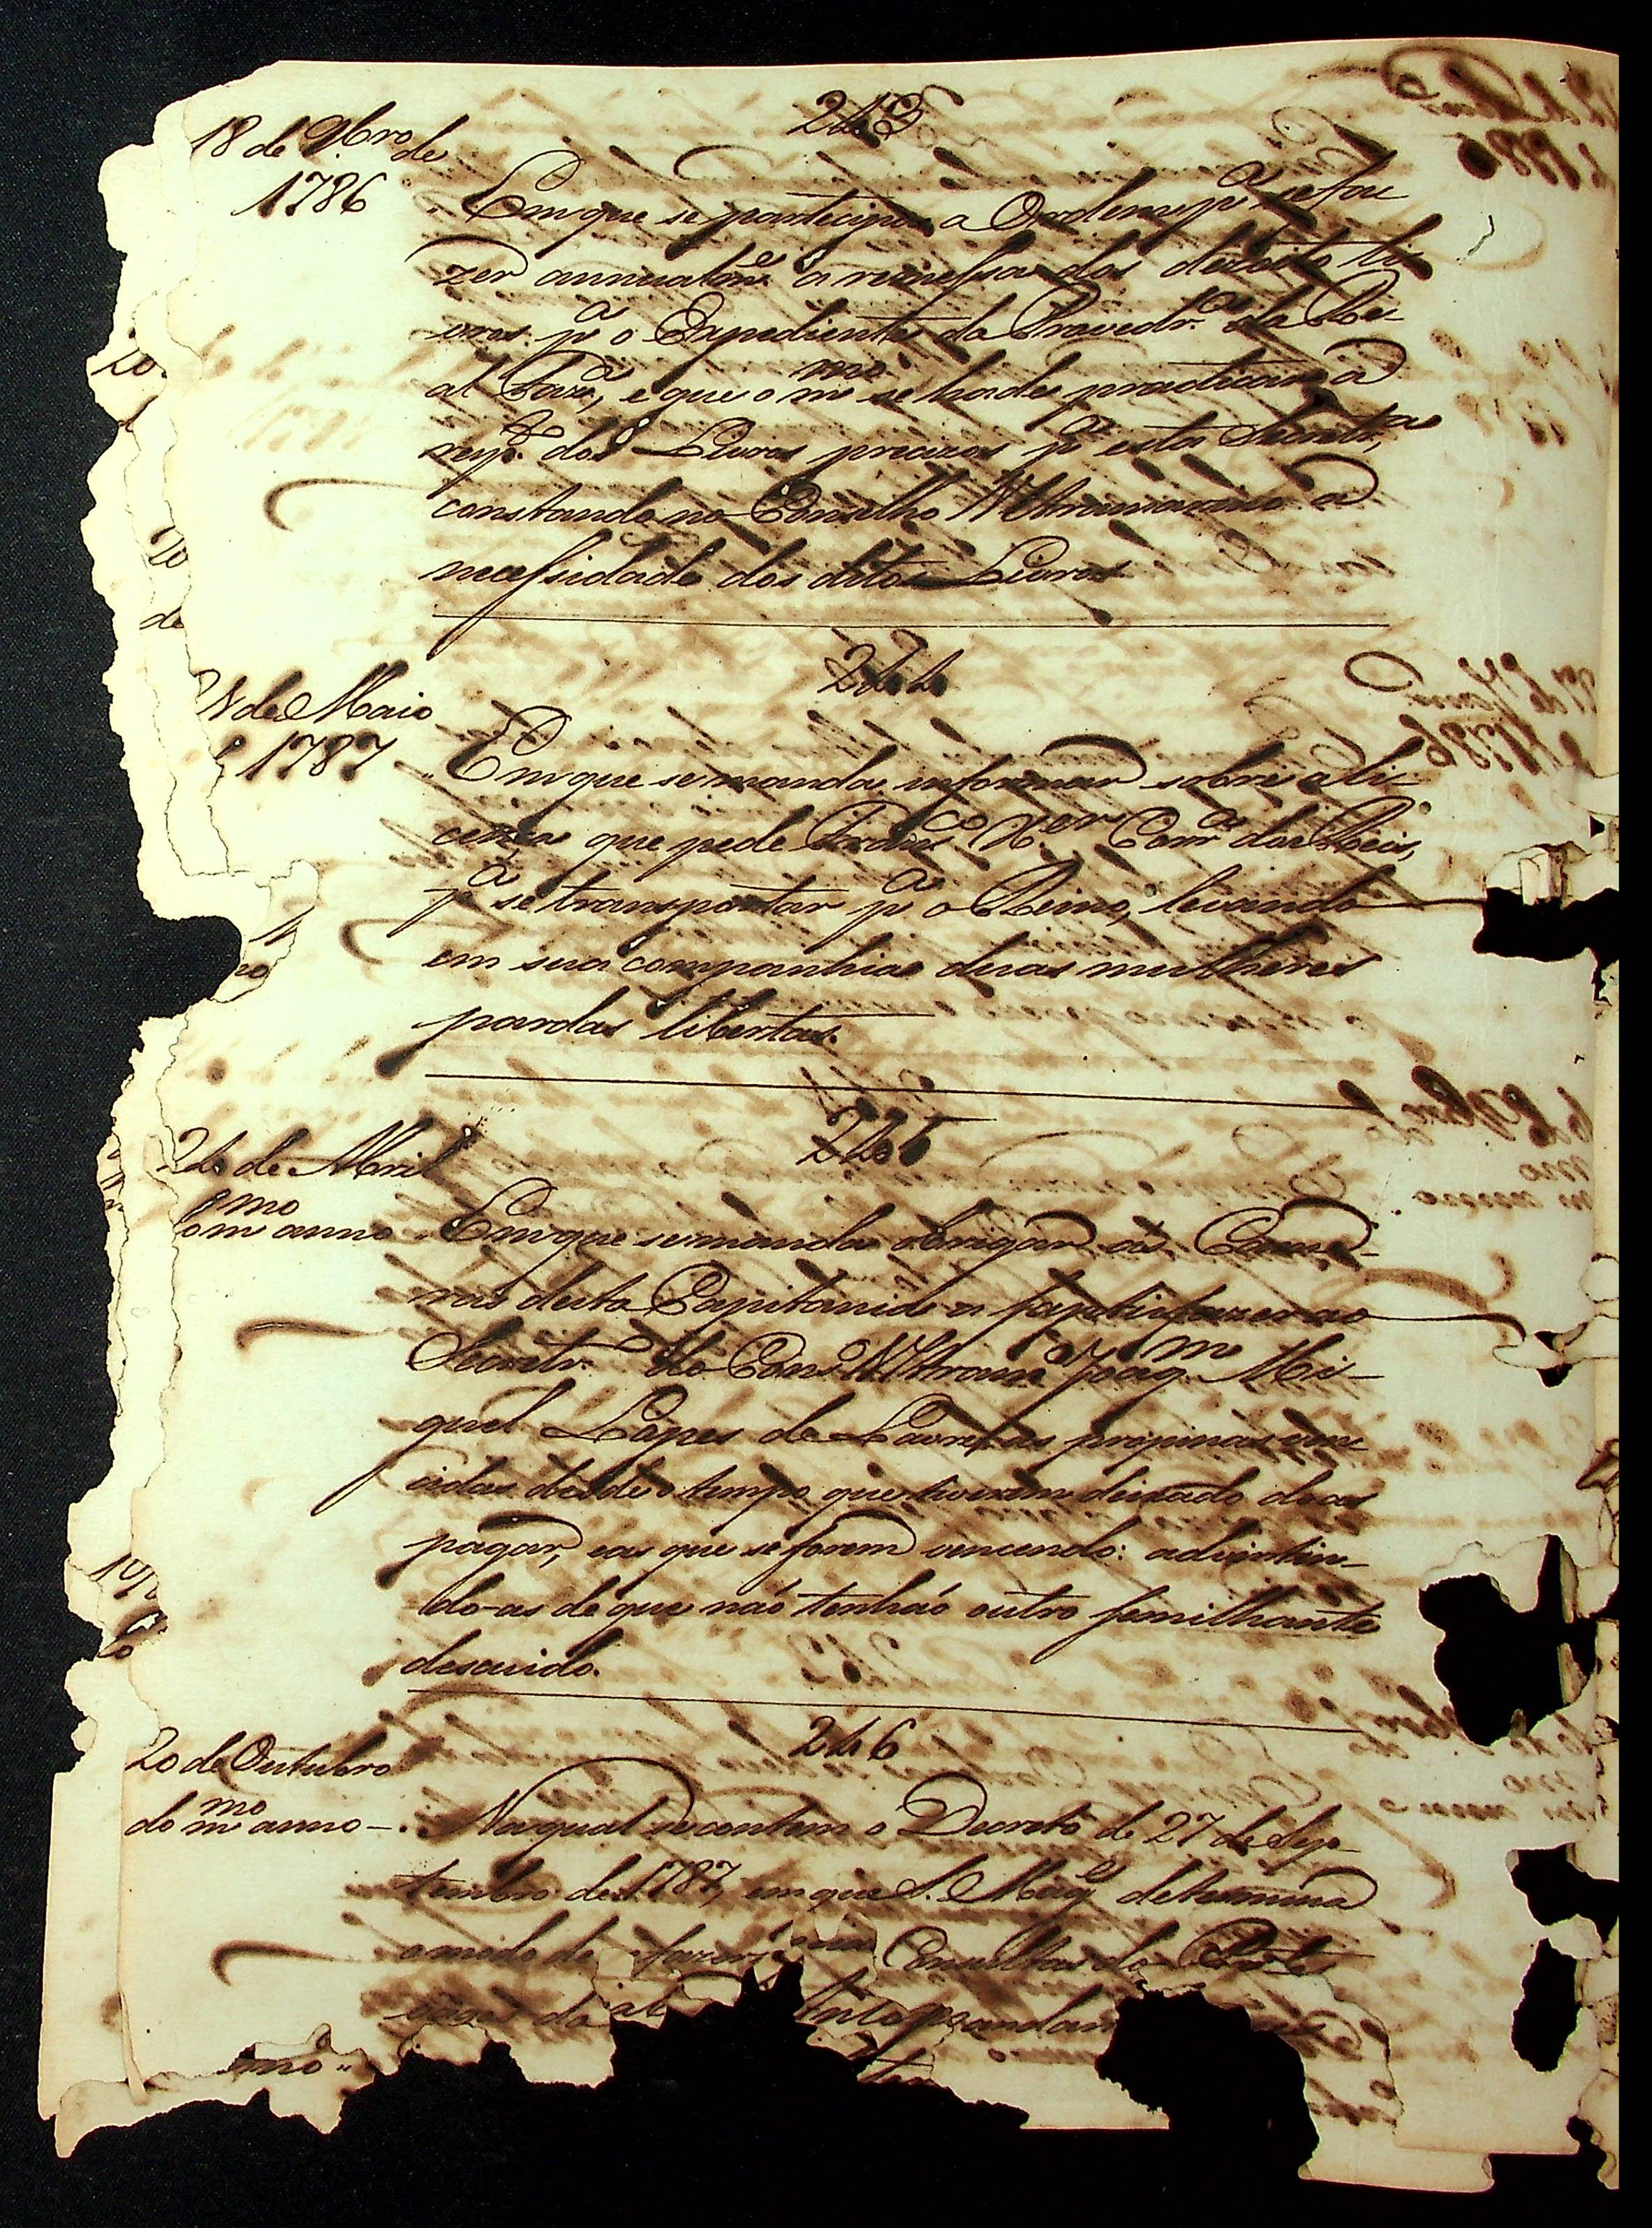 243
18 de 9bro de
1786
Em que se participa a Ordem pª se fa
zer annualmᵉ a remessa dos dezoito li
vros pª o Expediente da Provedrª da Re-
al Fazª, e que o mmo se hade praticar a
respᵗᵒ dos Livros precizos pª esta Secretrª,
constando no Conselho Ultramarino a
necessidade dos ditos Livros
244
de Maio
1787
Em que se manda informar sobre a li-
cença que pede Franᶜᵒ X.ᵉʳ Corrª dos Reis,
pª se transportar pª o Reino, levando
em sua companhia duas mulheres
pardas libertas.
245
24 de Abril
do mmo anno
Em que se manda obrigar as Cama-
ras desta Capitania a satisfazer ao
Secretrº do Consº Ultramº Joaqᵐ Mi-
guel Lopes de Lavre, as propinas ven
cidas desde o tempo que tiverem deixado de as
pagar, e as que se forem vencendo: advertin-
do-as de que não tenhão outro semilhante
descuido.
246
20 de Outubro
do mmo anno
Na qual se contem o Decreto de 27 de Sep-
tembro de 1787, em que S. Magᵉ determina
o modo de fazer Consultas do
mo